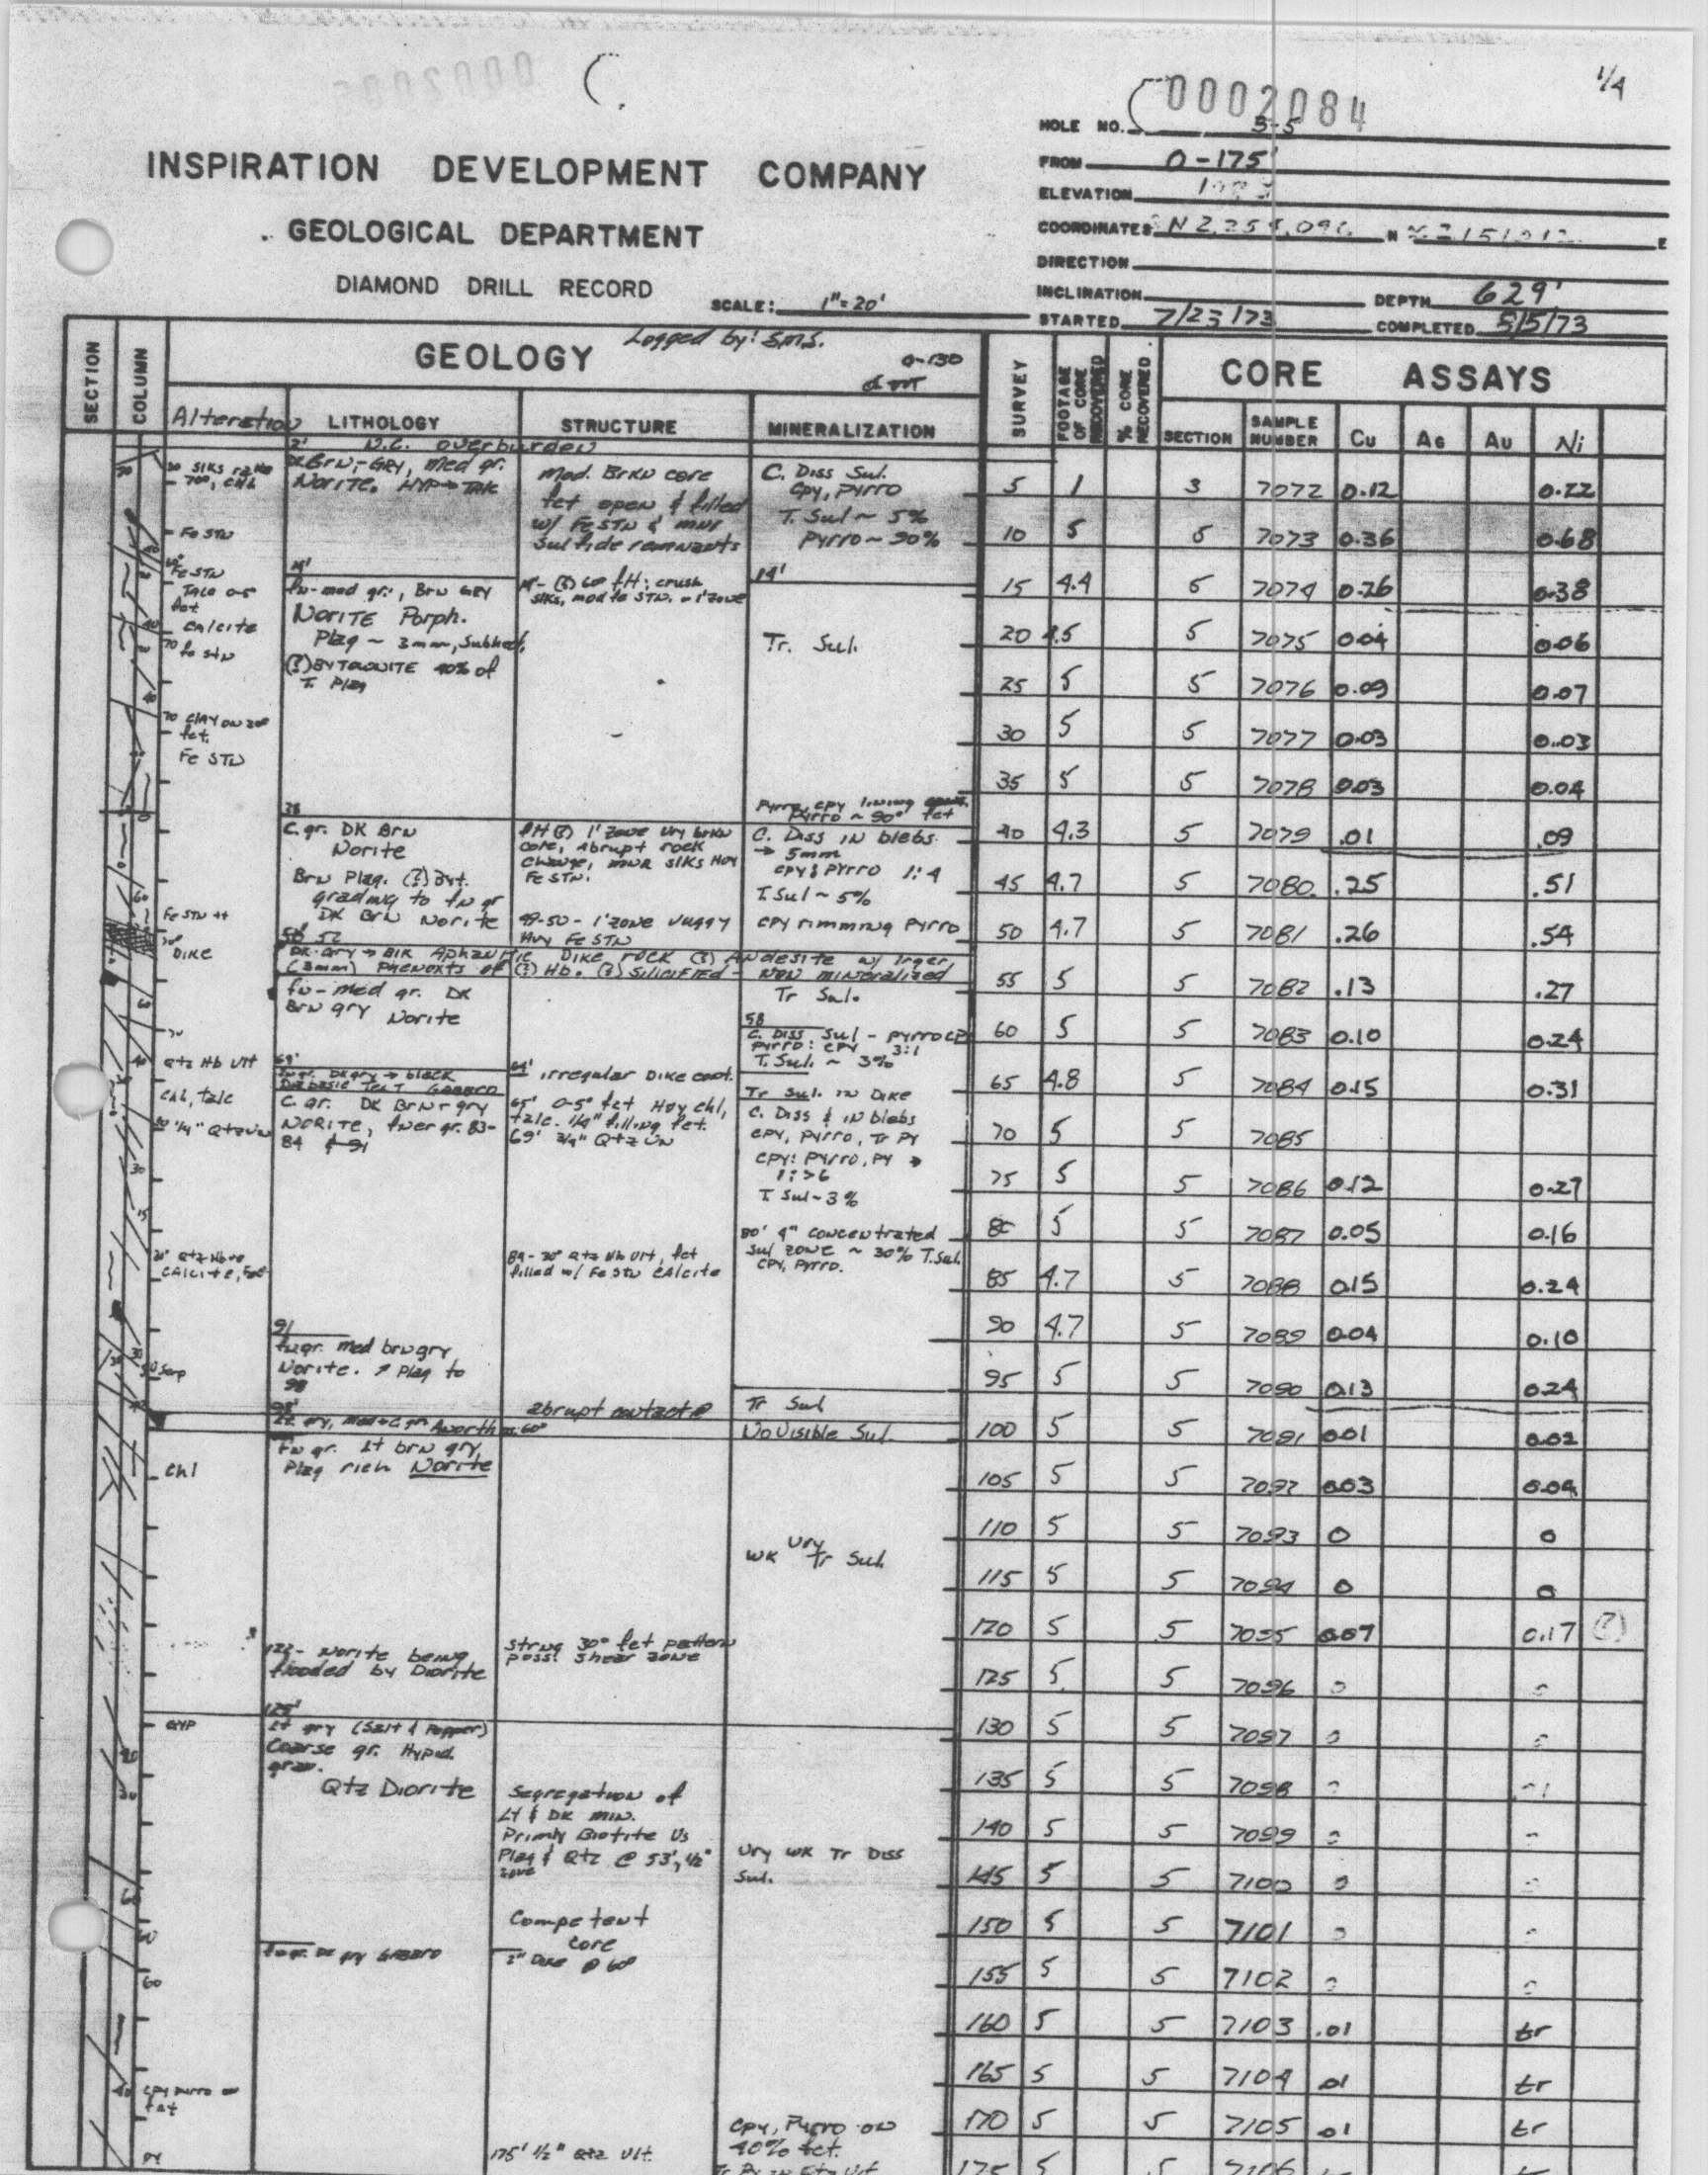 1/4
0002084
HOLE NO. B-5
FROM 0-175'
ELEVATION
COORDINATES N 2,25 ,096 N 2151012 E
DIRECTION
INCLINATION
DEPTH 629'
STARTED 7/23/73 COMPLETED 5/5/73
INSPIRATION DEVELOPMENT COMPANY
GEOLOGICAL DEPARTMENT
DIAMOND DRILL RECORD
SCALE: 1"=20'
Logged by: S.M.S.
0-130
SECTION
COLUMN
GEOLOGY
SURVEY
FOOTAGE OF CORE RECOVERED
% CORE RECOVERED
CORE ASSAYS
Alteration LITHOLOGY STRUCTURE MINERALIZATION
SECTION SAMPLE NUMBER Cu AG AU Ni
2' N.C. overburden
DK Brn-GRY, med gr.
Norite. HYP → Talc
14'
fn-med gr., Brn GRY
Norite Porph.
Plag ~ 3mm, Subhed.
(?) BYTOWNITE 40% of
T. Plag
38
C. gr. DK Brn
Norite
Brn Plag. (?) Byt.
grading to fn gr
DK Brn Norite
50' 52
DK Gry → Blk Aphanitic Dike rock (?) Andesite w/ lrger
(3mm) Phenoxts of (?) Hb. (?) Silicified - Non mineralized
fn-med gr. DK
Brn gry Norite
fn gr. DK gry → black
Diabasic Text Gabbro
C. gr. DK Brn-gry
NORITE, finer gr. 83-
84 & 91
91
fn gr. med brn gry
Norite. ↗ Plag to
98
98'
Lt gry, med + C gr. Anorth
Fn gr. lt brn gry,
Plag rich Norite
122- Norite being
flooded by Diorite
Lt gry (Salt & Pepper)
Coarse gr. Hypid.
gran.
Qtz Diorite
fn gr. DK gry Gabbro
Mod. Brkn core
fct open & filled
w/ Fe STN & mnr
Sulfide remnants
14'- (?) 60° flt; crush
slks, mod fe STN. - 1' zone
flt (?) 1' zone vry brkn
core, abrupt rock
change, mnr slks Hvy
Fe STN.
49-50 - 1' zone vuggy
Hvy Fe STN
irregular Dike cont.
65' 0-5° fct Hvy chl,
talc. 1/4" filling fct.
69' 3/4" Qtz VN
84- 30° Qtz Hb Vlt, fct
filled w/ Fe STN Calcite
abrupt contact @
60°
Strng 30° fct pattern
poss! Shear zone
Segregation of
Lt & DK min.
Primly Biotite Vs
Plag & Qtz @ 53', 1/2"
zone
Competent
core
Dike @ 60°
175' 1/2" Qtz Vlt.
C. Diss Sul.
Cpy, Pyrro
T. Sul ~ 5%
Pyrro ~ 90%
14'
Tr. Sul.
Pyrro, cpy lining
Pyrro ~ 90° fct
C. Diss in blebs
→ 5mm
cpy: Pyrro 1:4
T. Sul ~ 5%
cpy rimming Pyrro
Tr Sul.
58
C. Diss Sul - Pyrro cp
Pyrro: cpy 3:1
T. Sul. ~ 3%
Tr Sul. in Dike
C. Diss & in blebs
cpy, Pyrro, Tr Py
cpy: Pyrro, Py →
1: >6
T. Sul ~ 3%
80' 4" concentrated
Sul zone ~ 30% T. Sul.
cpy, Pyrro.
Tr Sul
No Visible Sul.
WK Vry Tr Sul.
Vry WK Tr Diss
Sul.
Cpy, Pyrro on
40% fct.
Tr Py in Qtz Vlt
- Fe STN
Fe STN
Talc 0-5
fct
Calcite
70 fe stn
70 Clay on 20°
fct.
Fe STN
Fe STN
Dike
Qtz Hb Vlt
Chl, talc
1/4" Qtz VN
Serp
Chl
5 1 3 7072 0.12 0.22
10 5 5 7073 0.36 0.68
15 4.4 5 7074 0.26 0.38
20 4.5 5 7075 0.04 0.06
25 5 5 7076 0.09 0.07
30 5 5 7077 0.03 0.03
35 5 5 7078 0.03 0.04
40 4.3 5 7079 .01 .09
45 4.7 5 7080 .25 .51
50 4.7 5 7081 .26 .54
55 5 5 7082 .13 .27
60 5 5 7083 0.10 0.24
65 4.8 5 7084 0.15 0.31
70 5 5 7085
75 5 5 7086 0.12 0.27
80 5 5 7087 0.05 0.16
85 4.7 5 7088 0.15 0.24
90 4.7 5 7089 0.04 0.10
95 5 5 7090 0.13 0.24
100 5 5 7091 0.01 0.02
105 5 5 7092 0.03 0.04
110 5 5 7093 0 0
115 5 5 7094 0 0
120 5 5 7095 0.07 0.17 (?)
125 5 5 7096 0 0
130 5 5 7097 0 0
135 5 5 7098 0
140 5 5 7099 0
145 5 5 7100 0 0
150 5 5 7101 0 0
155 5 5 7102 0 0
160 5 5 7103 .01 tr
165 5 5 7104 .01 tr
170 5 5 7105 .01 tr
175 5 5 7106